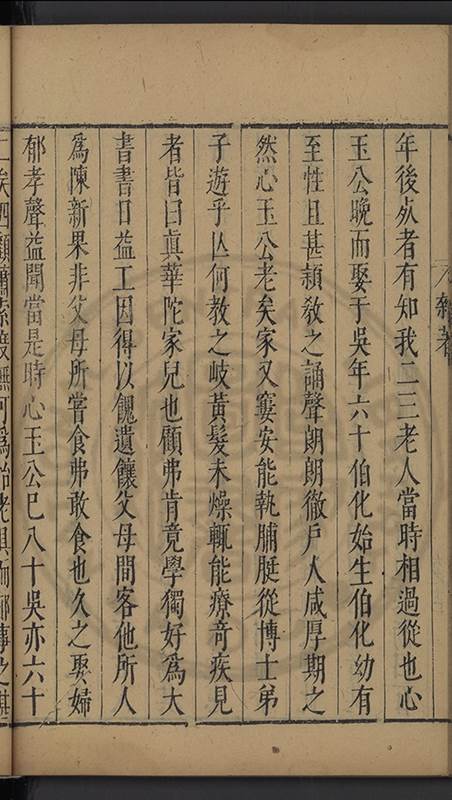 年後処者有知我二三老人當時相過從也心
玉公晚而娶于吳年六十伯化始生伯化幼有
至性且甚頴敎之誦聲朗朗徹户人咸厚期之
然心玉公老矣家又窶安能執脯脡從博士弟
子遊乎亾何教之岐黃髮未燥輒能療竒疾見
者皆曰眞華陀家兒也顧弗肯竟學獨好爲大
書書日益工因得以餽遺饟父母間客他所人
爲陳新果非父母所嘗食弗敢食也久之娶婦
郁孝聲益聞當是時心玉公巳八十吳亦六十